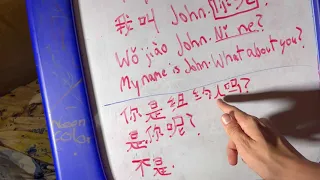 我叫 John. 你呢?
Wǒ jiào John. Nǐ ne?
My name is John. What about you?
你是纽约人吗?
是,你呢?
不是.
neon
color